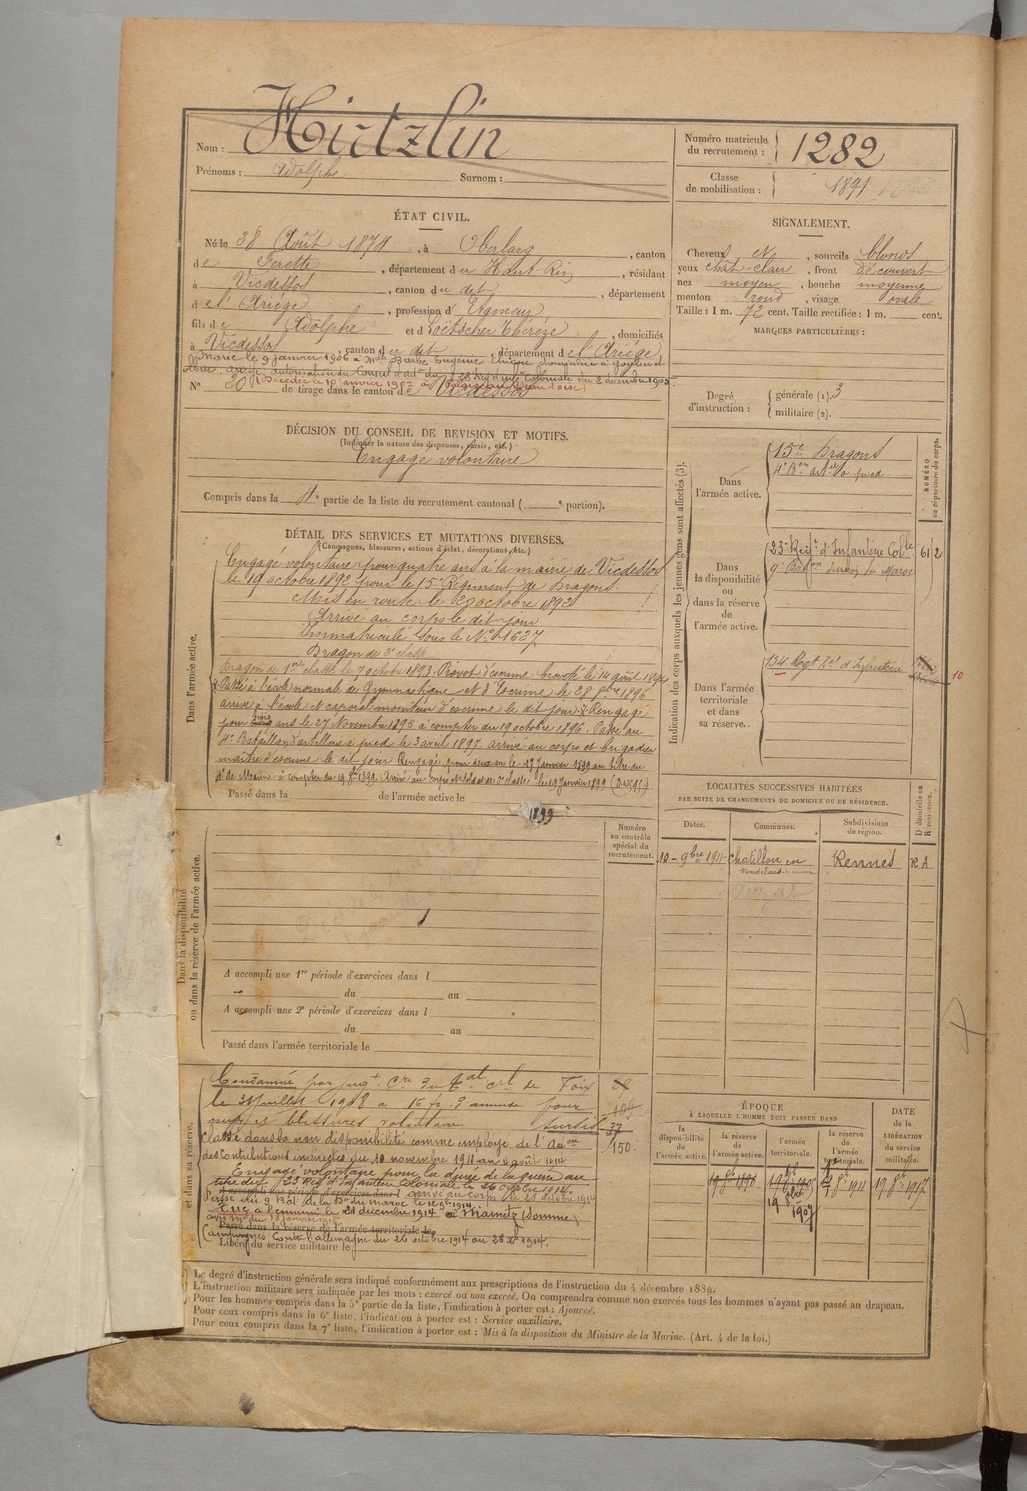 Nom : Hirtzlin
Prénoms : Adolphe Surnom :
Numéro matricule du recrutement : 1282
Classe de mobilisation : 1891
ÉTAT CIVIL.
Né le 28 Août 1874, à Oberlarg, canton
de Ferette, département du Haut Rin, résidant
à Vicdessos, canton du dit, département
de l'Ariége, profession d'
fils de Adolphe et d Loëtscher Thérèze, domiciliés
à Vicdessos, canton du dit, département de l'Ariége
Marié le 9 janvier 1906 à Melle Barbe Eugénie domiciliée à
autorisation du Conseil d'adon du 23e Regt d'infie Coloniale du 2 décembre 1905
(Décédée le 10 janvier 1907 à
N° 20 de tirage dans le canton de Vicdessos
SIGNALEMENT.
Cheveux , sourcils blonds
yeux chât-clair, front découvert
nez moyen, bouche moyenne
menton rond, visage ovale
Taille : 1 m. 72 cent. Taille rectifiée : 1 m. cent.
MARQUES PARTICULIÈRES :
Degré d'instruction : générale (1). 3
militaire (2).
DÉCISION DU CONSEIL DE REVISION ET MOTIFS.
(Indiquer la nature des dispenses, sursis, etc.)
Engagé volontaire
Compris dans la partie de la liste du recrutement cantonal ( e portion).
DÉTAIL DES SERVICES ET MUTATIONS DIVERSES.
(Campagnes, blessures, actions d'éclat, décorations, etc.)
Dans l'armée active.
Engagé volontaire pour quatre ans à la mairie de Vicdessos
le 19 octobre 1892 pour le 15e Régiment de Dragons.
Mis en route le octobre 1892
Arrivé au corps le dit jour
Immatriculé sous le N° 1627
Dragon de 2e classe
Dragon de 1ère classe le 7 octobre 1893. Prévot d'escrime breveté le 14 août 1894
Passé à l'école normale de Gymnastique et d'Escrime le 28 1896
arrivé à l'école et caporal moniteur d'escrime le dit jour. Rengagé
pour trois ans le 27 Novembre 1895 à compter du 19 octobre 1896. Passé au
4e Bataillon d'artillerie à pied le 3 avril 1897. arrivé au corps et brigadier
maître d'escrime le dit jour Rengagé pour deux ans le 17 Janvier 1899 au titre du
4e de Marine à compter du 19 8bre 1899. Arrivé au corps et soldat de 2e classe le 19 Janvier 1899
Passé dans la de l'armée active le
1899
Indication des corps auxquels les jeunes gens sont affectés (3).
NUMÉRO au répertoire du corps.
Dans l'armée active.
15e Dragons
4e Bon artie à pied
Dans la disponibilité ou dans la réserve de l'armée active.
23e Regt d'Infanterie Colle 61/2
9e Baton du Maroc
Dans l'armée territoriale et dans sa réserve.
134 Regt d'Infanterie
10
LOCALITÉS SUCCESSIVES HABITÉES
PAR SUITE DE CHANGEMENTS DE DOMICILE OU DE RÉSIDENCE.
Dates. Communes. Subdivisions de région. D domicile ou R résidence.
10 - 9bre 1911 Chatillon en Vendelais Rennes RA
Dans la disponibilité ou dans la réserve de l'armée active.
Numéro au contrôle spécial du recrutement.
A accompli une 1re période d'exercices dans l
du au
A accompli une 2e période d'exercices dans l
du au
Passé dans l'armée territoriale le
et dans sa réserve.
Condamné par jugt Cre du tal cel de Foix
le 3 Juillet 1908 à 16 fr. d'amende pour
coups et blessures volontaires sursis 37
Classé dans la non disponibilité comme employé de l'Adon 150
des Contributions indirectes du 10 novembre 1911 au août 1914
Engagé volontaire pour la durée de la guerre au
titre du 23 Regt d'Infanterie Coloniale, le 26 octobre 1914
A accompli une période d'exercices dans l arrivé au corps le 28 octobre 1914
Passé au 9 Bat de la Bde du Maroc le 1914
Tué à l'ennemi le 21 décembre 1914 à Mametz (Somme)
Passé dans la réserve de l'armée territoriale le
Campagnes Contre l'allemagne du 26 octobre 1914 au 1914.
Libéré du service militaire le
ÉPOQUE
À LAQUELLE L'HOMME DOIT PASSER DANS
DATE de la LIBÉRATION du service militaire.
la disponibilité de l'armée active. la réserve de l'armée active. l'armée territoriale. la réserve de l'armée territoriale.
19 8bre 1896 19 8bre 1907 8bre 1911 19 8bre 1917
Le degré d'instruction générale sera indiqué conformément aux prescriptions de l'instruction du 4 décembre 1889.
L'instruction militaire sera indiquée par les mots : exercé ou non exercé. On comprendra comme non exercés tous les hommes n'ayant pas passé au drapeau.
Pour les hommes compris dans la 5e partie de la liste, l'indication à porter est : Ajourné.
Pour ceux compris dans la 6e liste, l'indication à porter est : Service auxiliaire.
Pour ceux compris dans la 7e liste, l'indication à porter est : Mis à la disposition du Ministre de la Marine. (Art. 4 de la loi.)